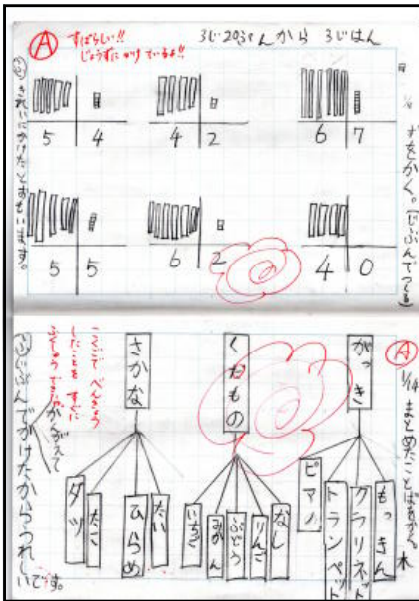 A
すばらしい!!
じょうずにかけているよ!!
3じ20ぷんから 3じはん
ずをかく。(じぶんでつくる)
5 4
4 2
6 7
5 5
6 2
4 0
きれいにかけたとおもいます。
A
1/14 まとめたことばをかく。 木
がっき
もっきん
クラリネット
トランペット
ピアノ
くだもの
なし
りんご
ぶどう
みかん
いちご
さかな
たい
ひらめ
たこ
こくごでべんきょう
したことを すぐに
じぶんでかけたからうれしいです。